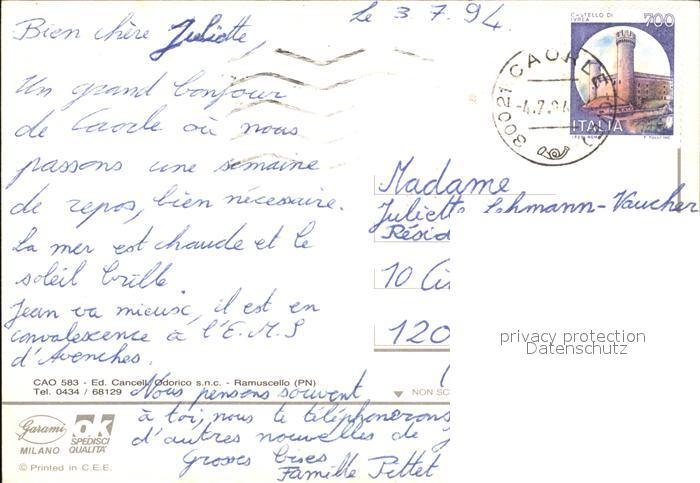 Le 3.7.94.
Bien chère Juliette,
Un grand bonjour
de Caorle où nous
passons une semaine
de repos, bien nécessaire.
La mer est chaude et le
soleil brille.
Jean va mieux, il est en
convalescence à l'E.M.S
d'Avenches.
Nous pensons souvent
à toi, nous te téléphonerons
d'autres nouvelles de
Grosses bises
Famille Pittet
CASTELLO DI
IVREA
700
ITALIA
30021 CAORLE
-4.7.94
Madame
Juliette Lehmann-Vaucher
Résid
10 
120
privacy protection
Datenschutz
CAO 583 - Ed. Cancell. Odorico s.n.c. - Ramuscello (PN)
Tel. 0434 / 68129
NON SC
Garami
MILANO
ok
SPEDISCI
QUALITÀ
© Printed in C.E.E.